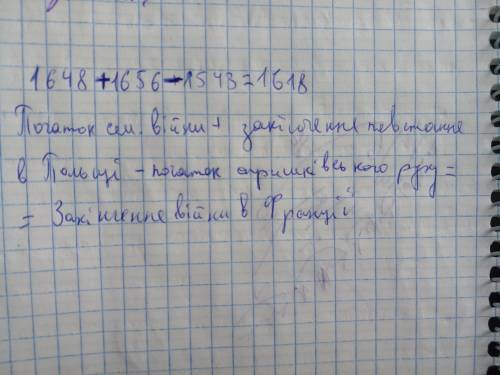 1648+1656-1543=1618
Початок сел. війни + закінчення повстання
в Польщі - початок опришківського руху =
= Закінчення війни в Франції